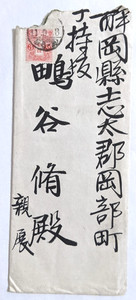 静岡縣志太郡岡部町
子持坂
鴨谷脩殿
親展